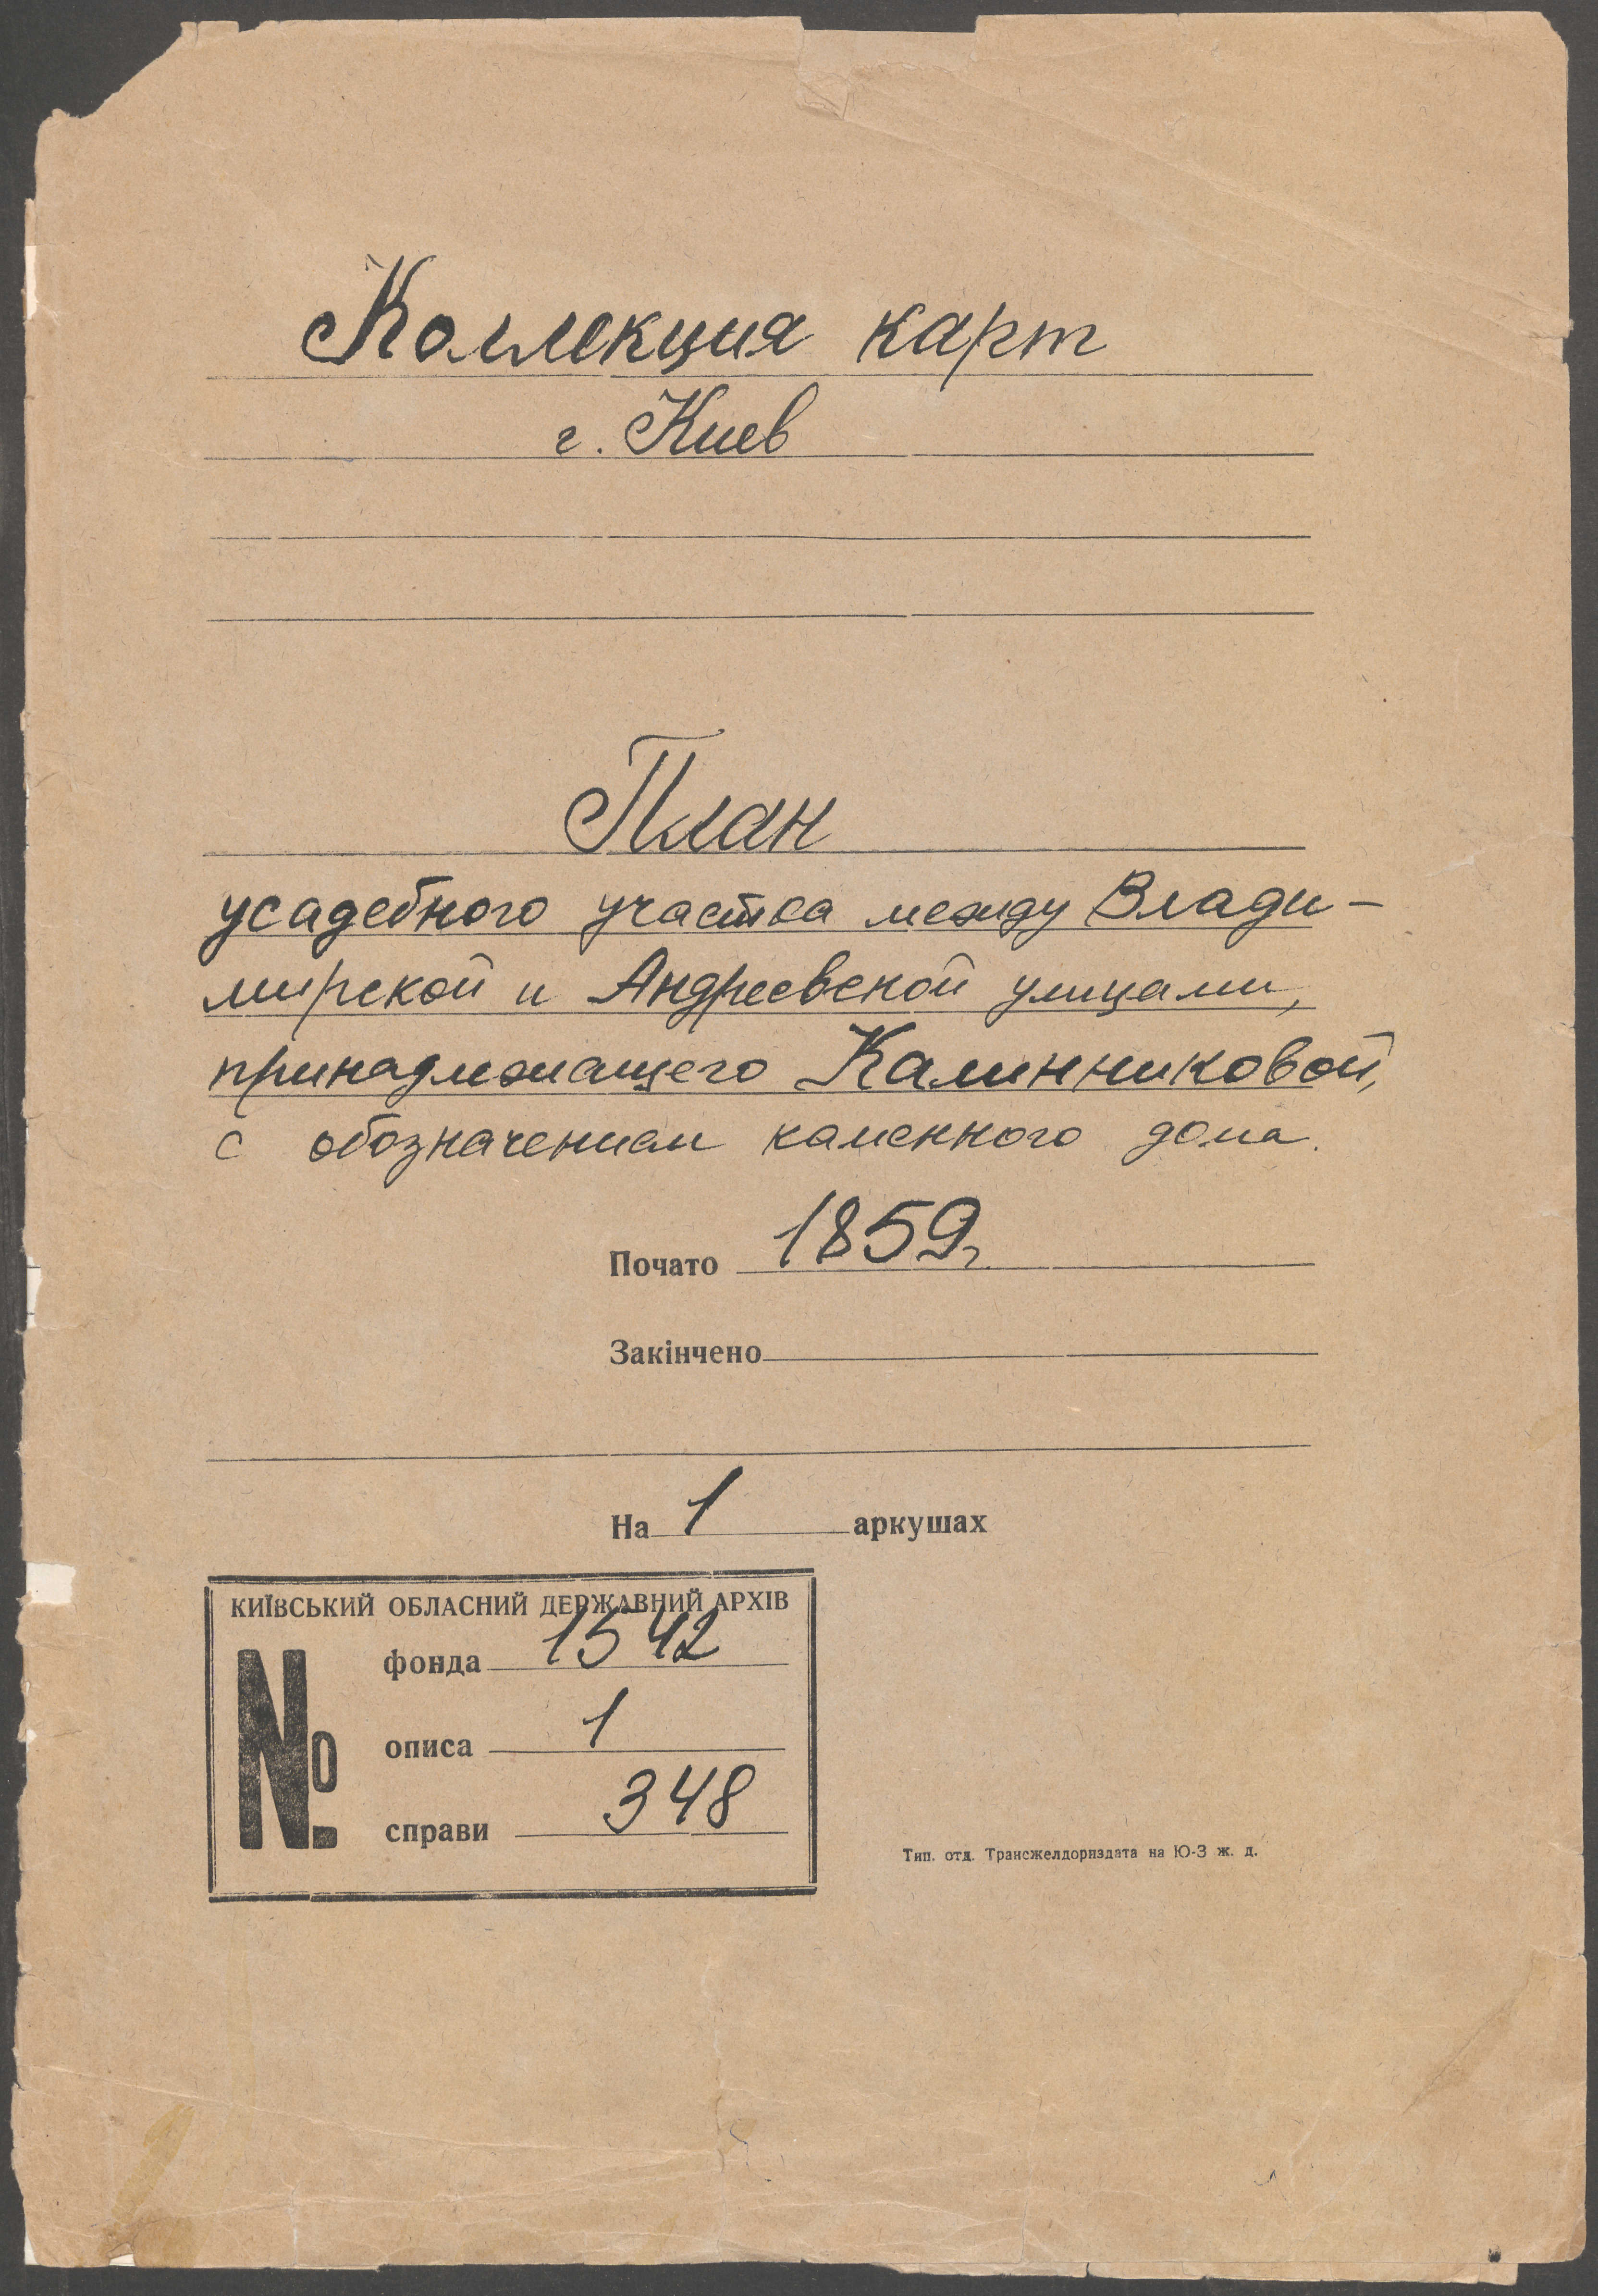 Коллекция карт
г. Киев
План
усадебного участка между Влади-
мирской и Андреевской улицами,
принадлежащего Калинниковой,
с обозначением каменного дома.
Почато 1859г.
Закінчено
На 1 аркушах
КИЇВСЬКИЙ ОБЛАСНИЙ ДЕРЖАВНИЙ АРХІВ
№
фонда 1542
описа 1
справи 348
Тип. отд. Трансжелдориздата на Ю-З ж. д.